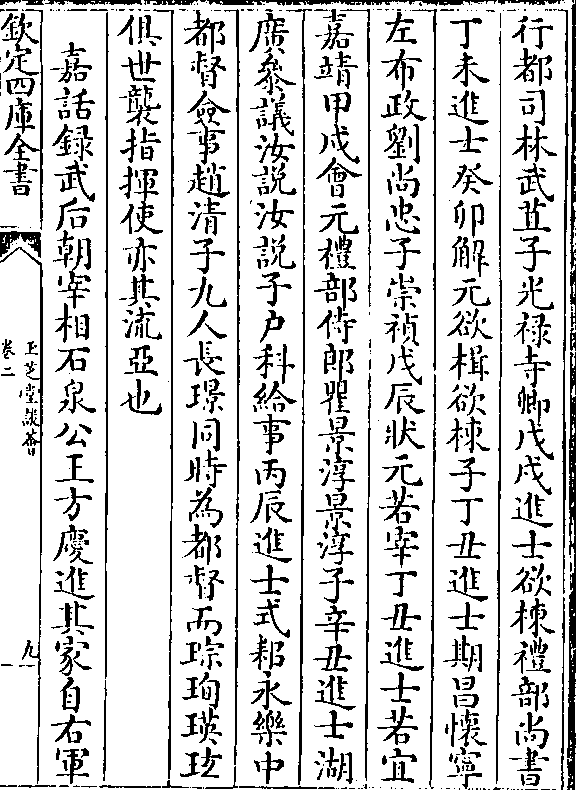 行都司林武苴子光禄寺卿戊戌進士欲棟禮部尚書
丁未進士癸卯解元欲楫欲棟子丁丑進士期昌懷寧
左布政劉尚忠子崇禎戊辰狀元若宰丁丑進士若宜
嘉靖甲戌會元禮部侍郎瞿景淳景淳子辛丑進士湖
廣叅議汝説汝説子户科給事丙辰進士式耜永樂中
都督僉事趙清子九人長璟同時為都督而琮珣瑛玹
俱世襲指揮使亦其流亞也
嘉話録武后朝宰相石泉公王方慶進其家自右軍
欽定四庫全書
玉芝堂談薈
卷二
九